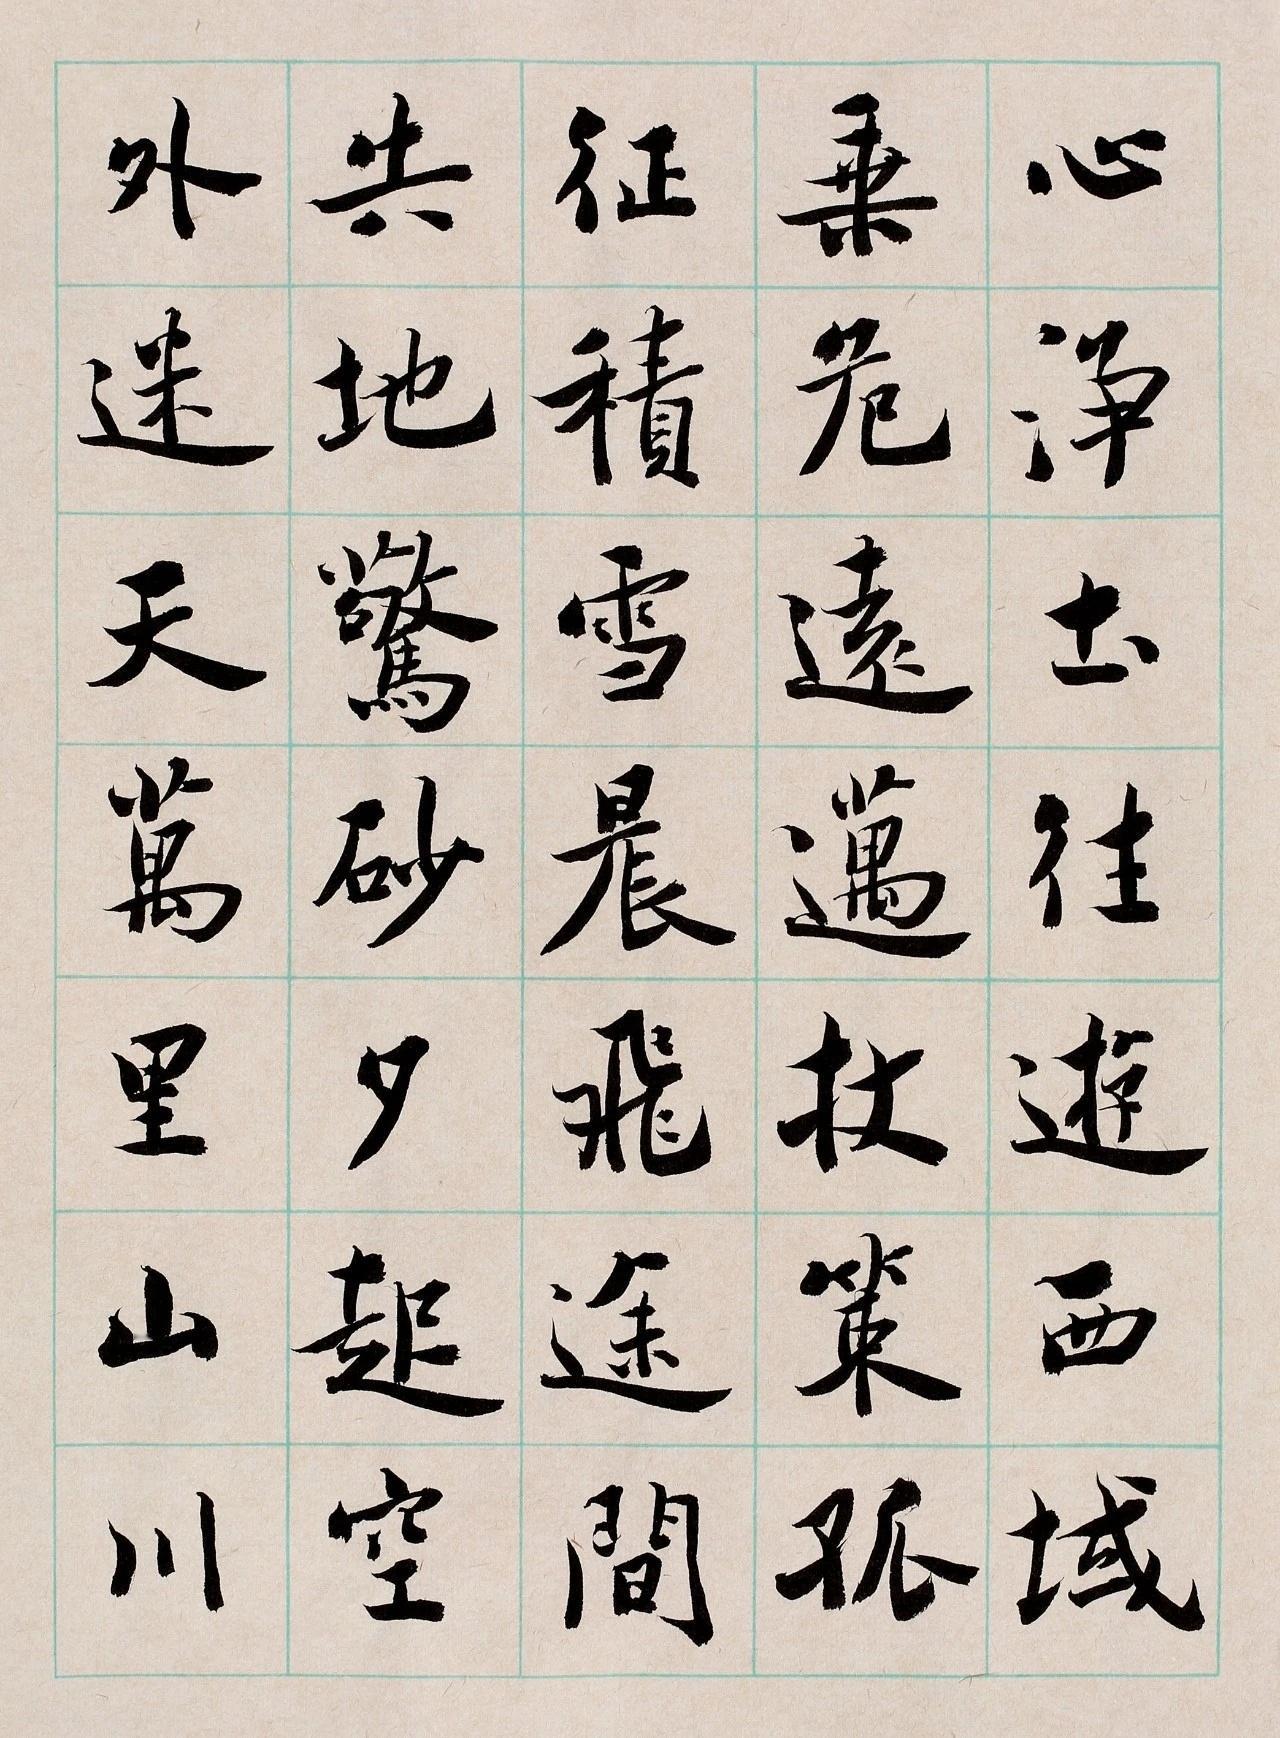 心淨土往遊西域
乗危遠邁杖策孤
征積雪晨飛途間
失地驚砂夕起空
外迷天萬里山川